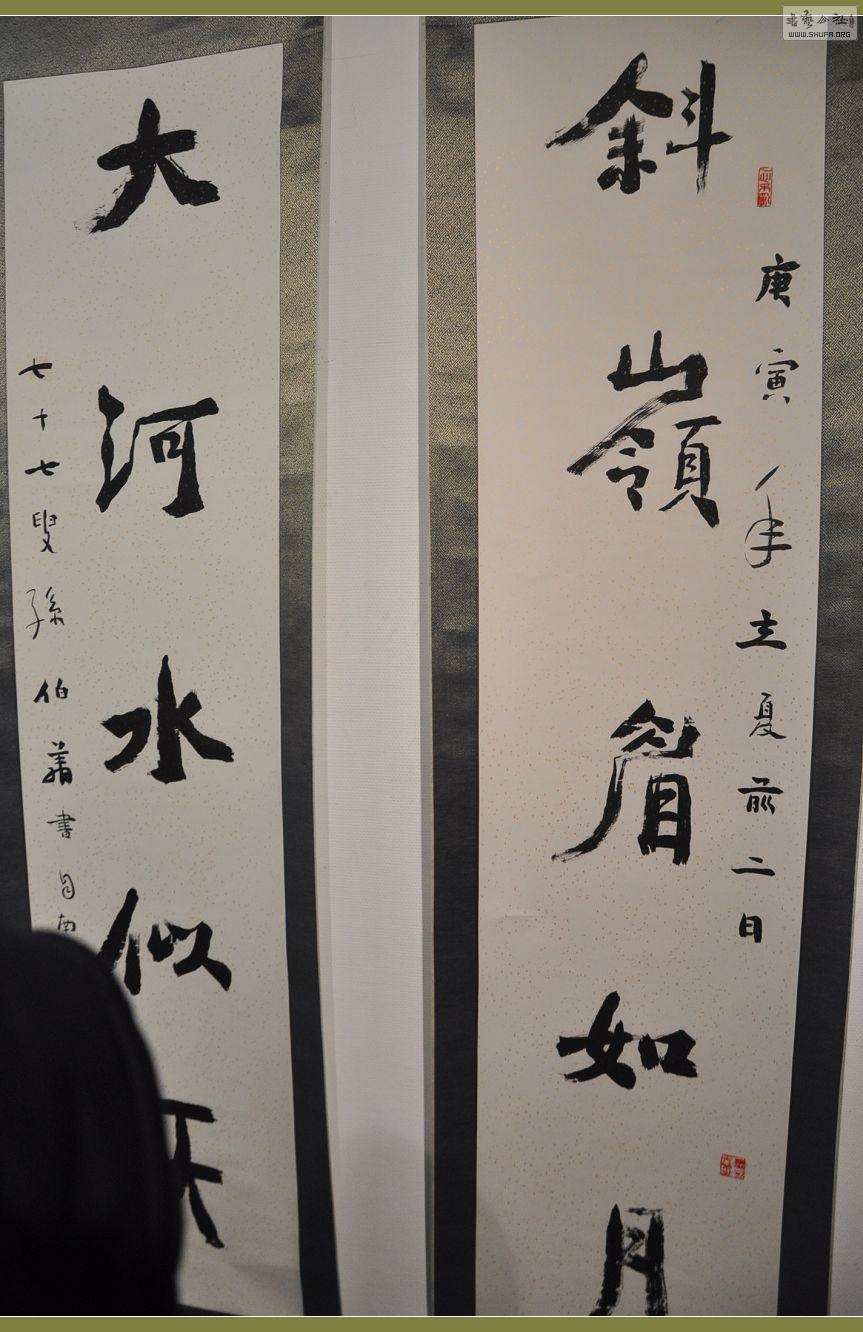 斜嶺眉如月
庚寅年立夏前二日
大河水似天
七十七叟孫伯翔書
WWW.SHUFA.ORG